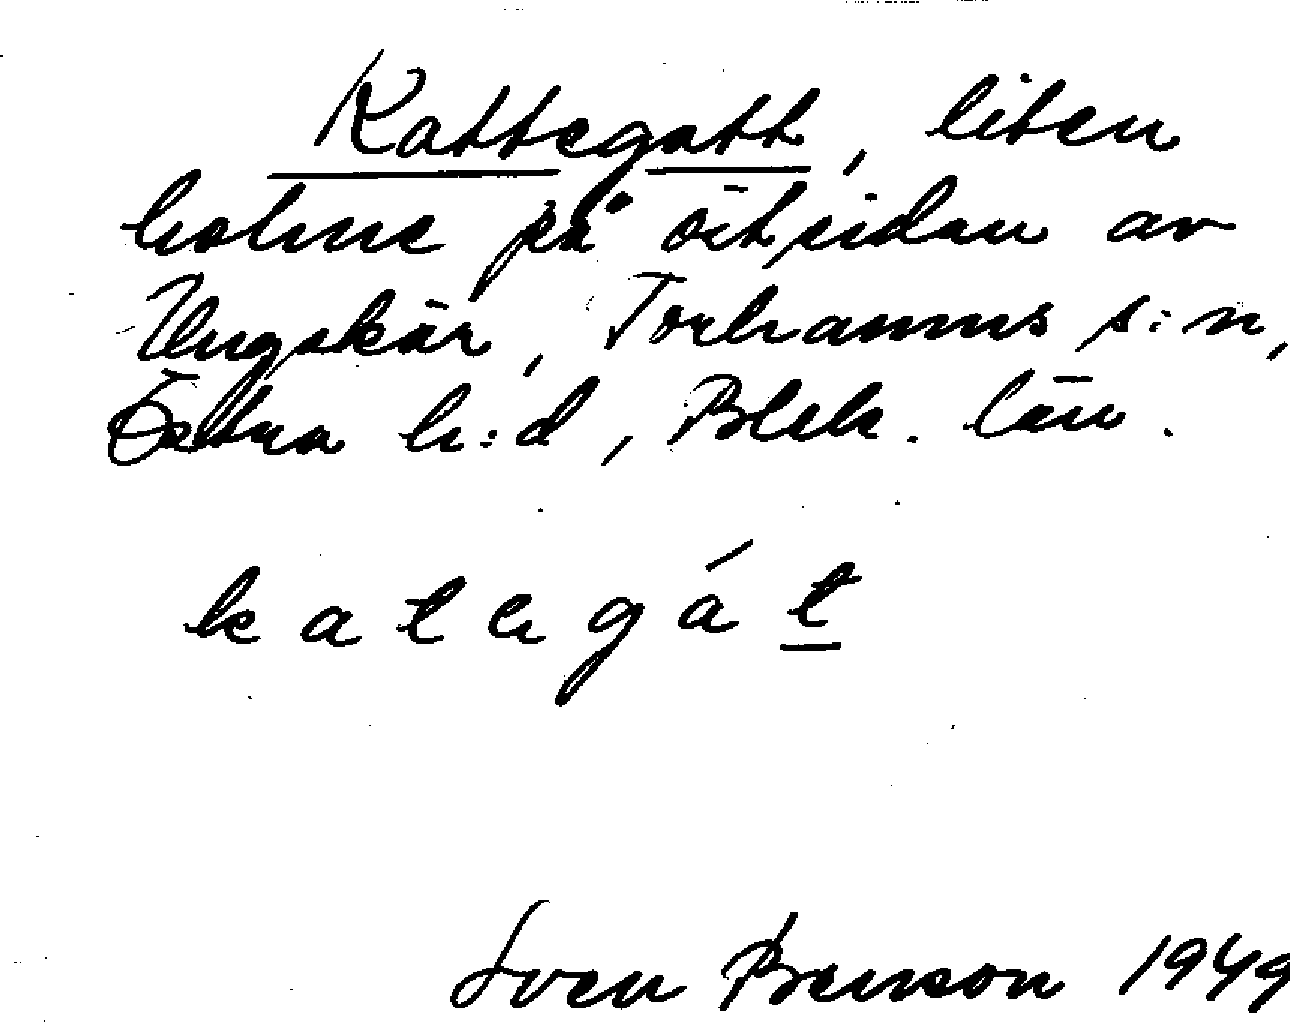 Kattegatt, liten
holme på östsidan av
Ungskär, Torhamns s:n,
Östra h:d, Blek. län.
k a t e g á t
Sven Benson 1949